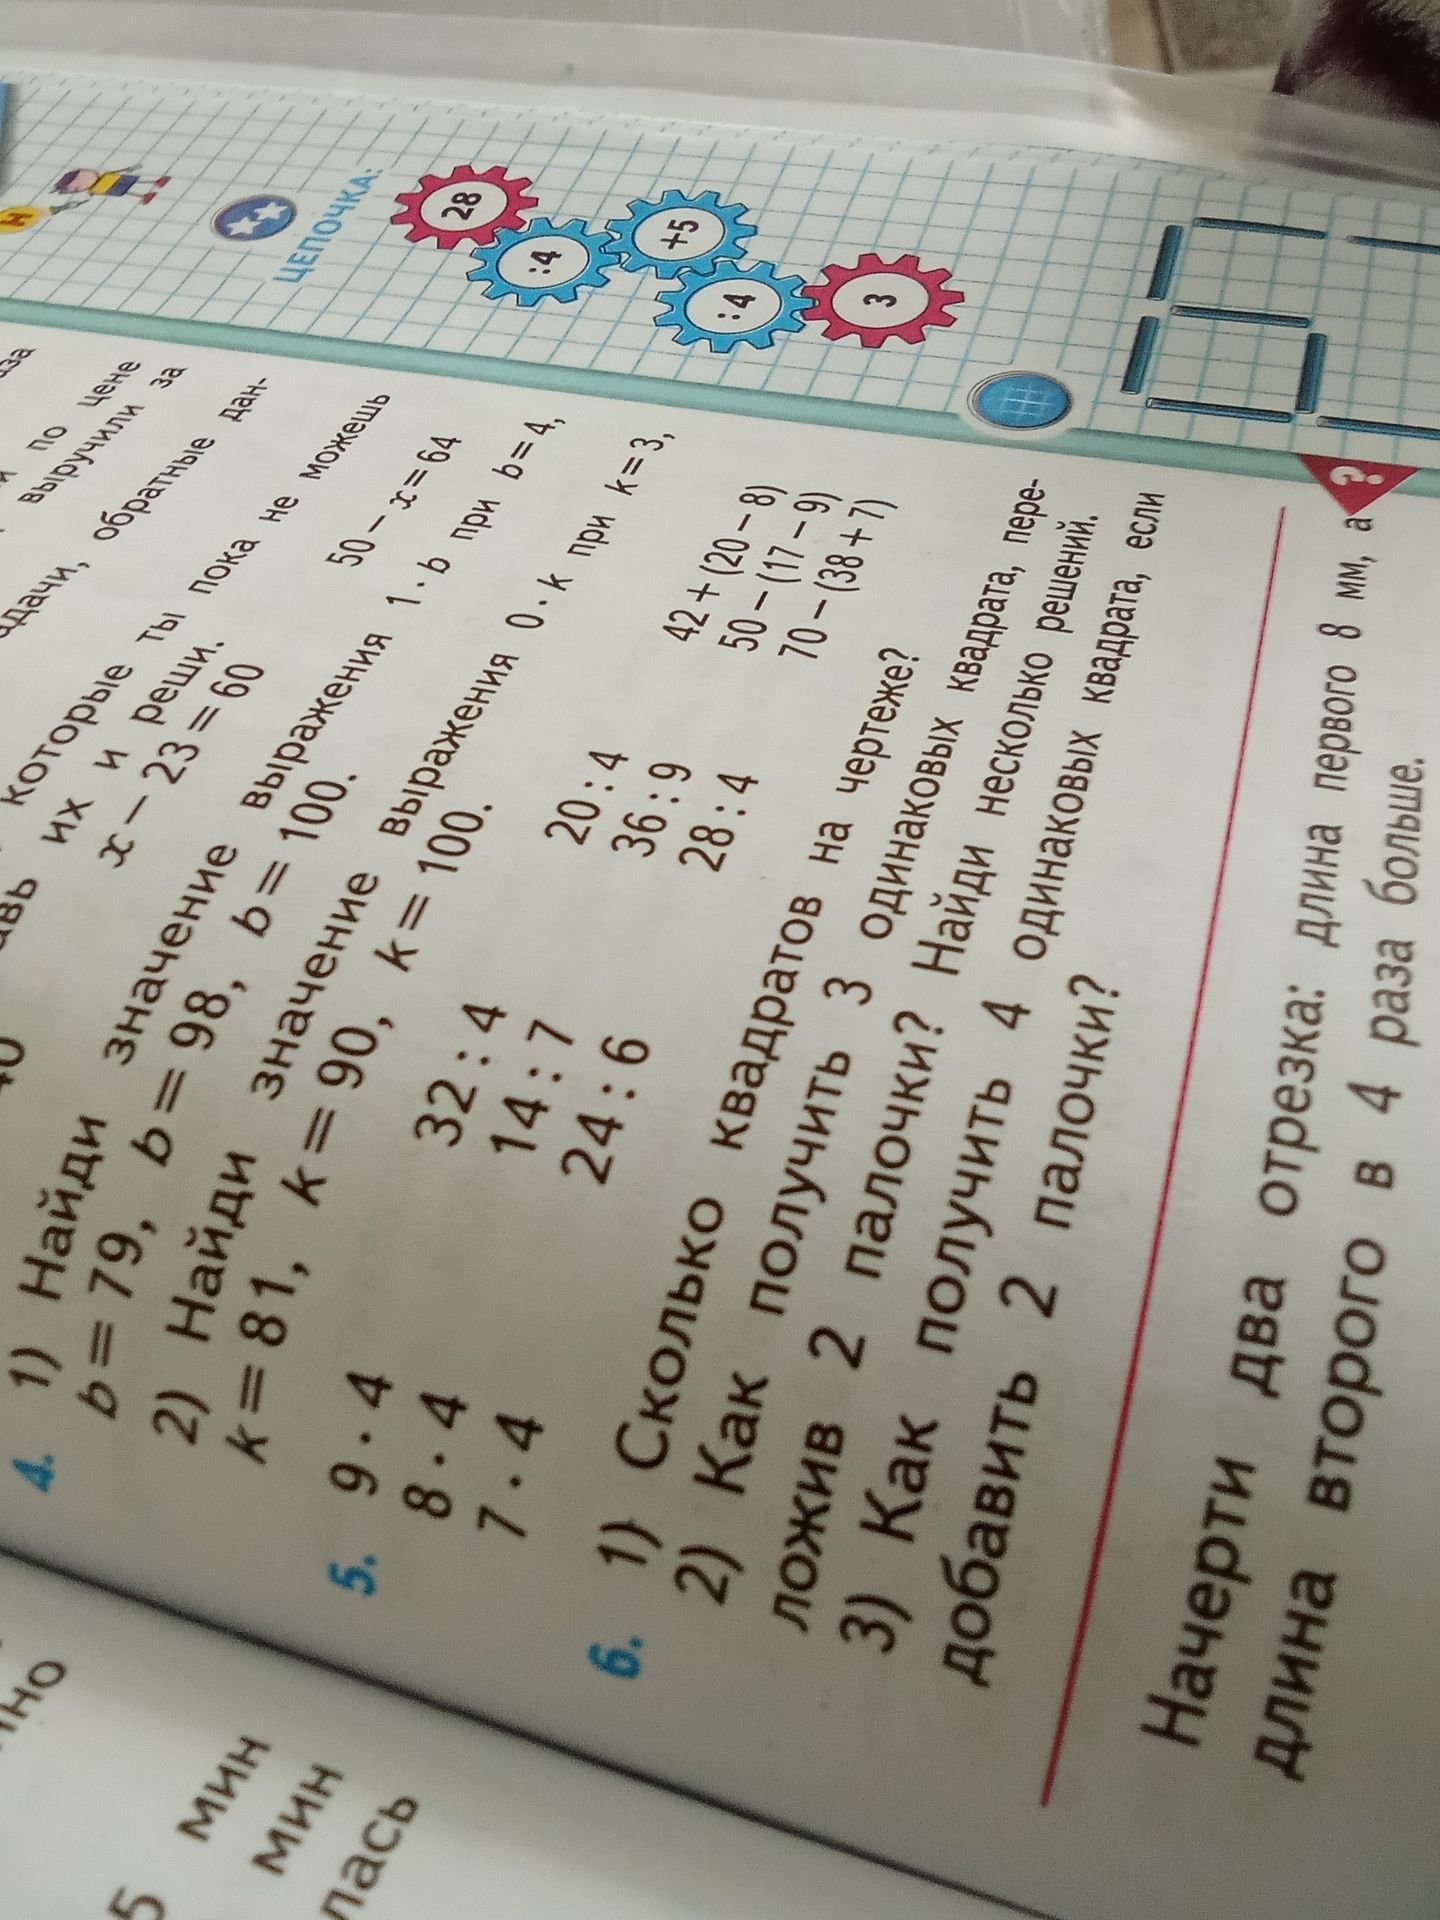 аза
по цене
выручили за
обратные дан-
которые ты пока не можешь
их и реши.
x − 23 = 60 50 − x = 64
4. 1) Найди значение выражения 1 · b при b = 4,
b = 79, b = 98, b = 100.
2) Найди значение выражения 0 · k при k = 3,
k = 81, k = 90, k = 100.
5. 9 · 4 32 : 4 20 : 4 42 + (20 − 8)
8 · 4 14 : 7 36 : 9 50 − (17 − 9)
7 · 4 24 : 6 28 : 4 70 − (38 + 7)
6. 1) Сколько квадратов на чертеже?
2) Как получить 3 одинаковых квадрата, пере-
ложив 2 палочки? Найди несколько решений.
3) Как получить 4 одинаковых квадрата, если
добавить 2 палочки?
Начерти два отрезка: длина первого 8 мм, а
длина второго в 4 раза больше.
?
Н
ЦЕПОЧКА:
28
:4
+5
:4
3
но
5 мин
мин
лась